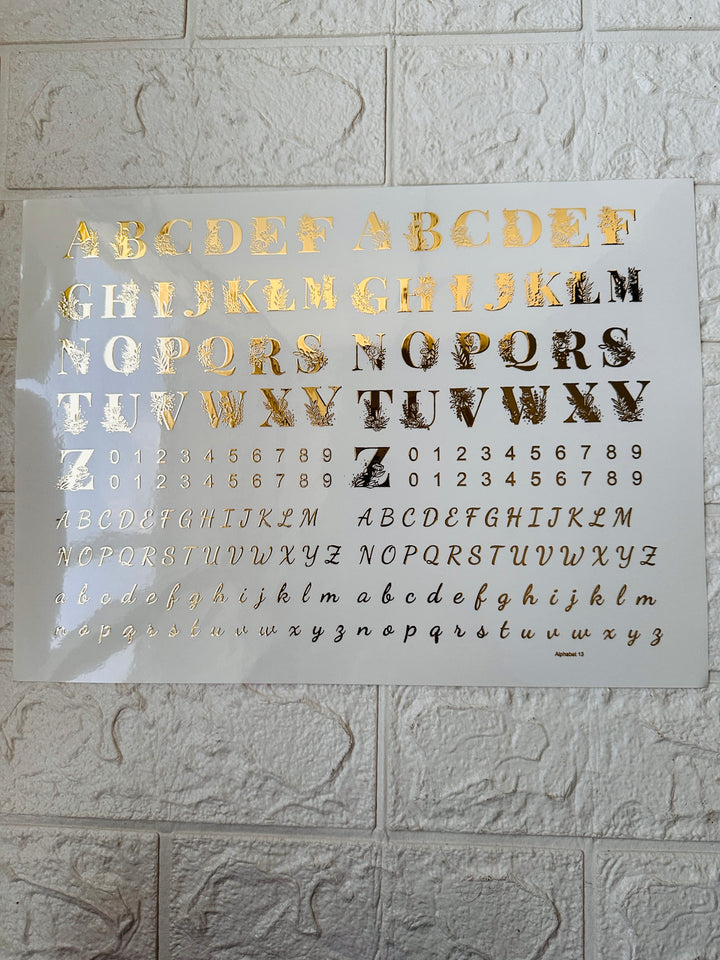 A B C D E F A B C D E F
G H I J K L M G H I J K L M
N O P Q R S N O P Q R S
T U V W X Y T U V W X Y
Z 0 1 2 3 4 5 6 7 8 9 Z 0 1 2 3 4 5 6 7 8 9
0 1 2 3 4 5 6 7 8 9 0 1 2 3 4 5 6 7 8 9
A B C D E F G H I J K L M A B C D E F G H I J K L M
N O P Q R S T U V W X Y Z N O P Q R S T U V W X Y Z
a b c d e f g h i j k l m a b c d e f g h i j k l m
n o p q r s t u v w x y z n o p q r s t u v w x y z
Alphabet 13